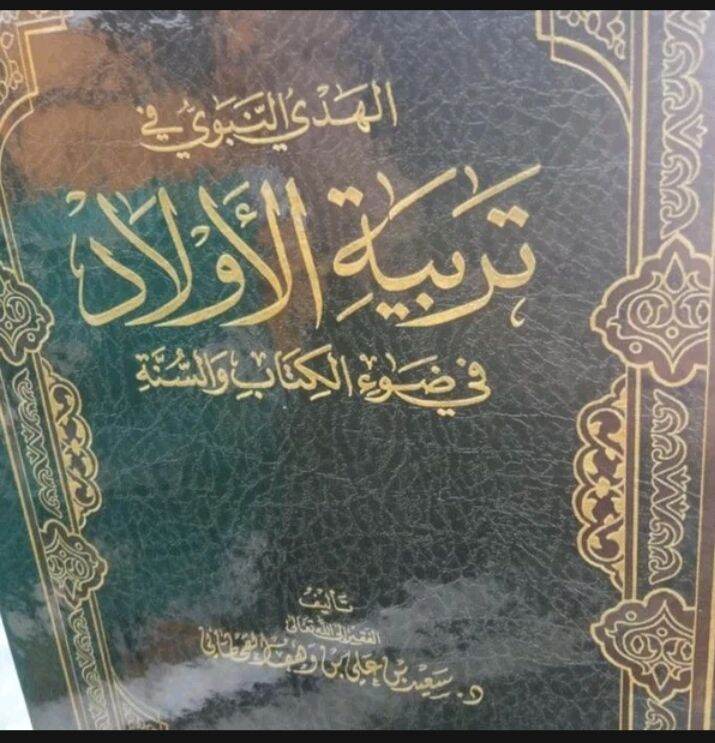 الهَدْيُ النَّبَوِيُّ في
تَربِيَةِ الأَولَادِ
في ضَوءِ الكِتَابِ وَالسُّنَّةِ
تَأليفُ
الفقير إلى الله تعالى
د. سَعِيد بن عَلي بن وَهف القحطاني